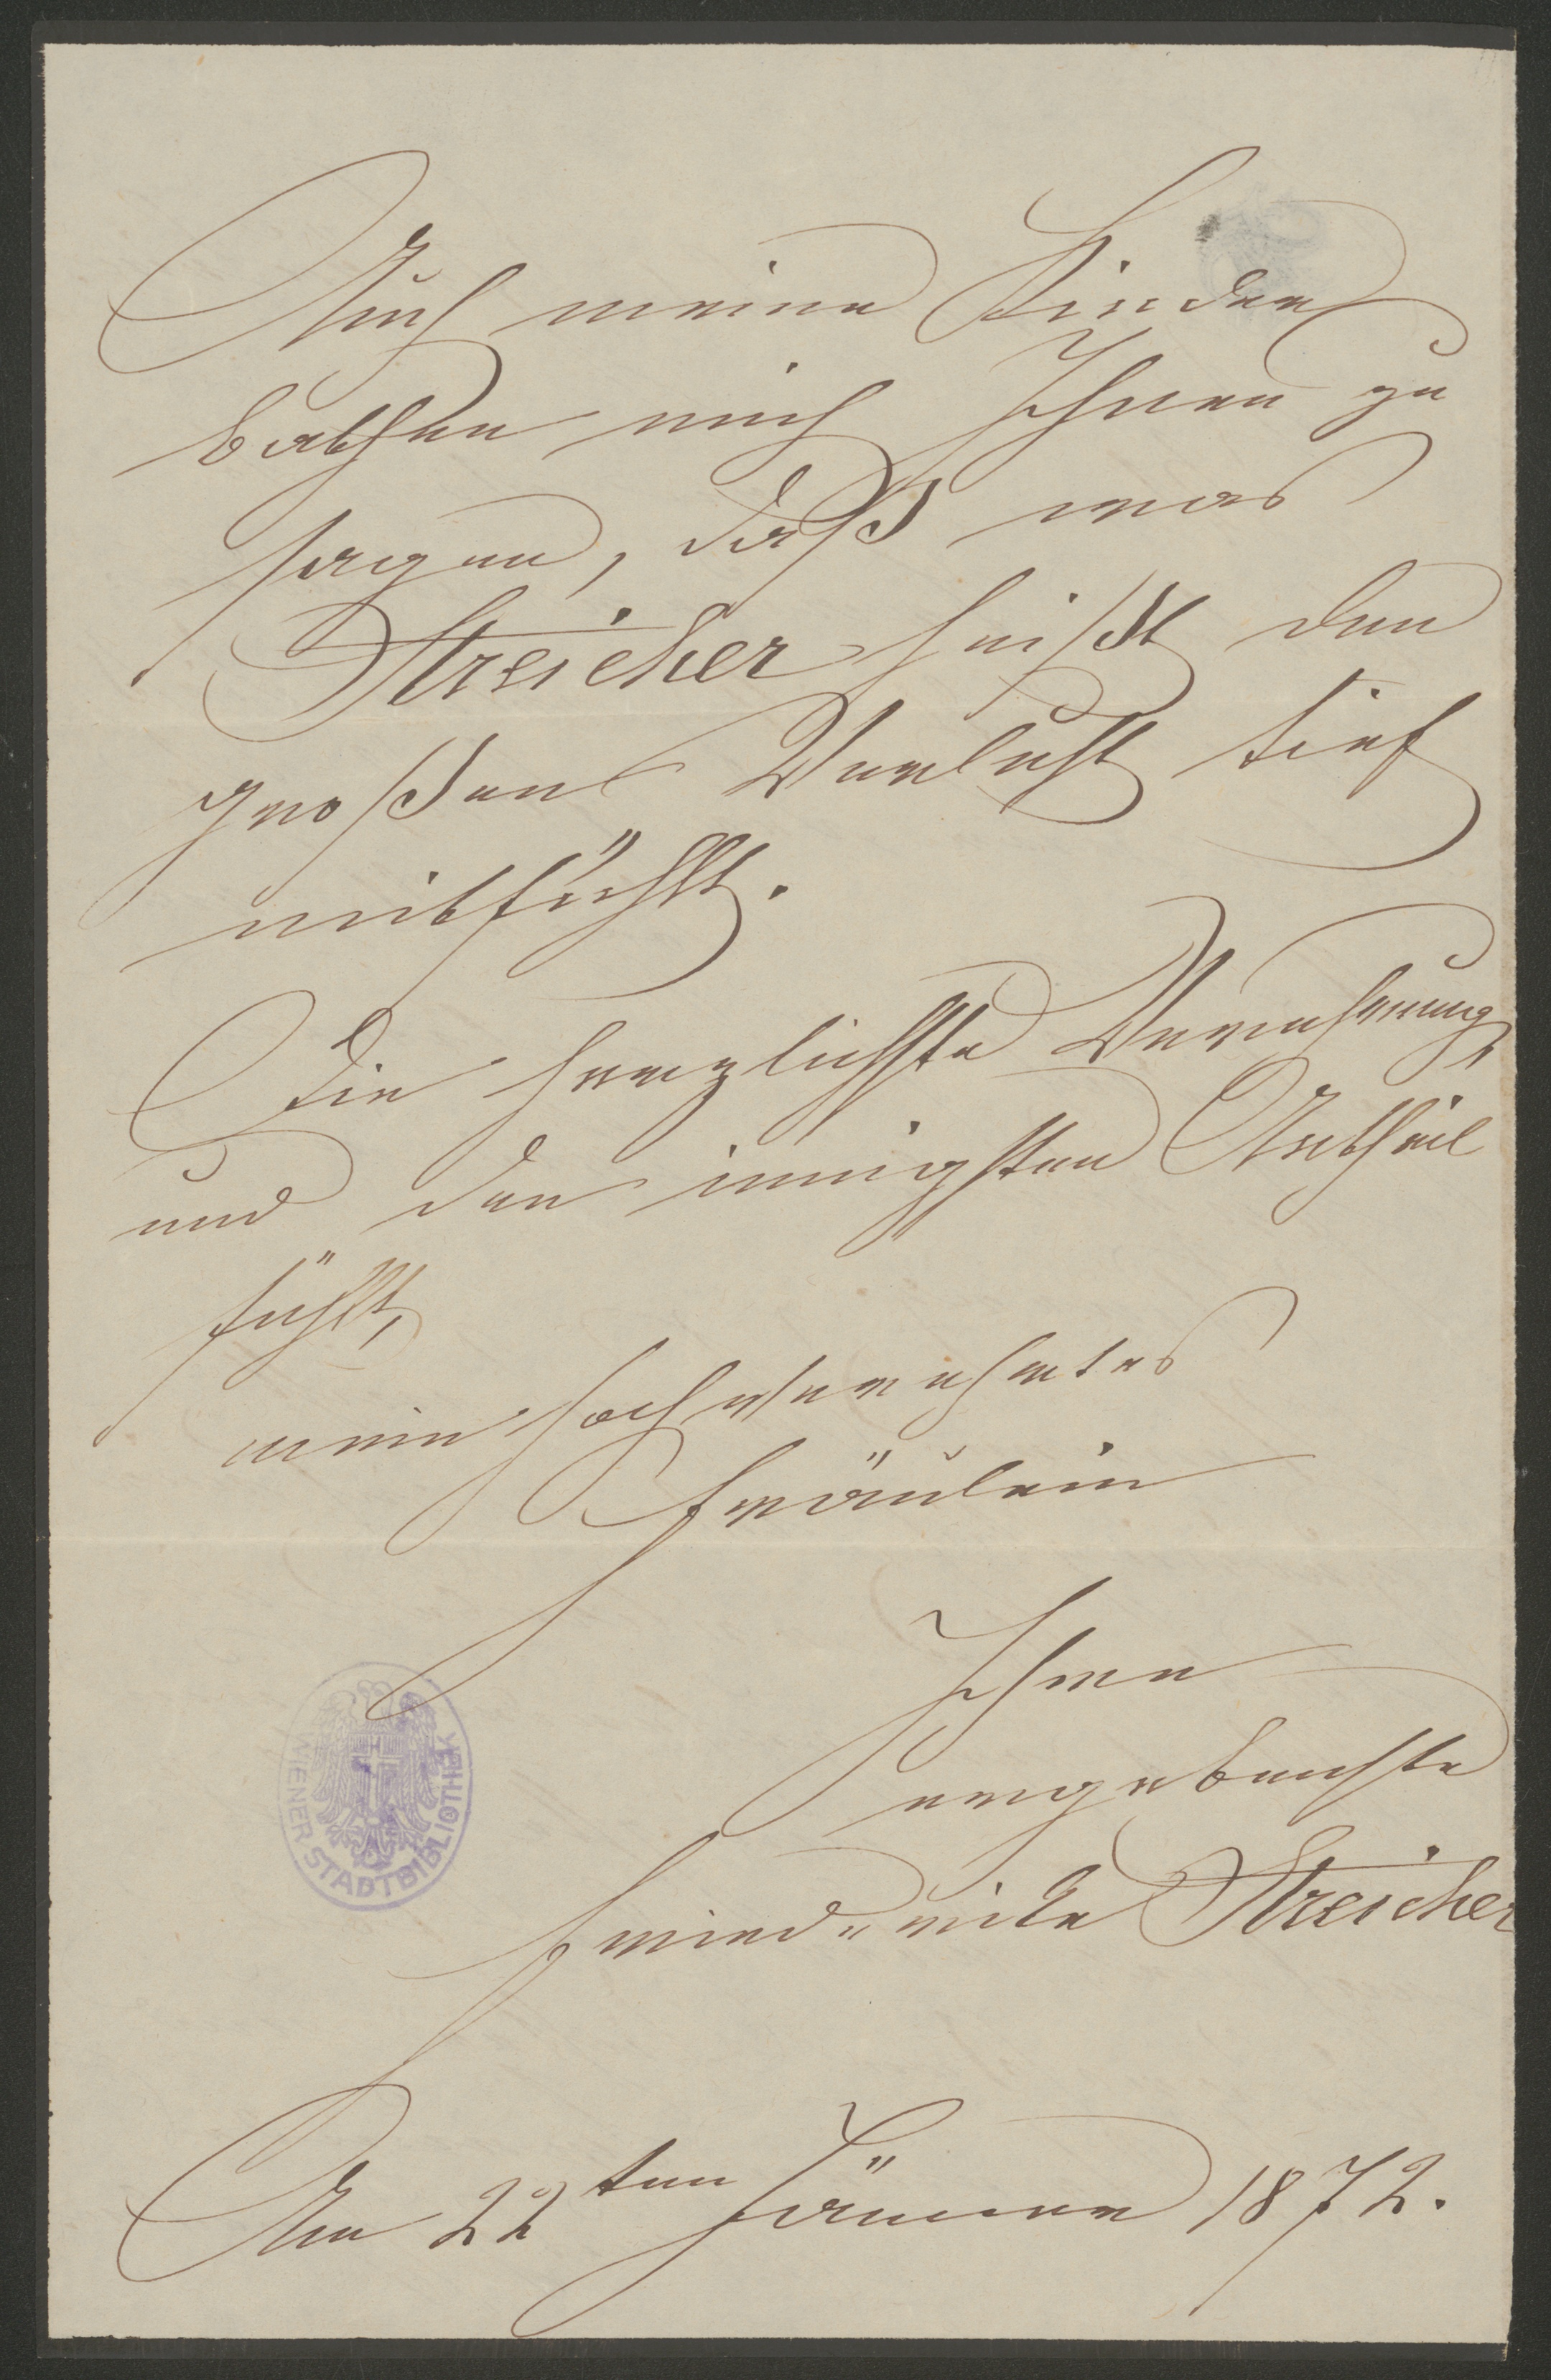 Auch meine Kinder
bathen mich Ihnen zu
sagen, daß was
Streicher heißt den
großen Verlust tief
mitfühlt.
Die herzlichste Verehrung,
und den innigsten Antheil
fühlt,
mein hochverehrtes
Fräulein
Ihre
ergebenste
Friederike Streicher
Am 22ten Jänner 1872.
WIENER STADTBIBLIOTHEK